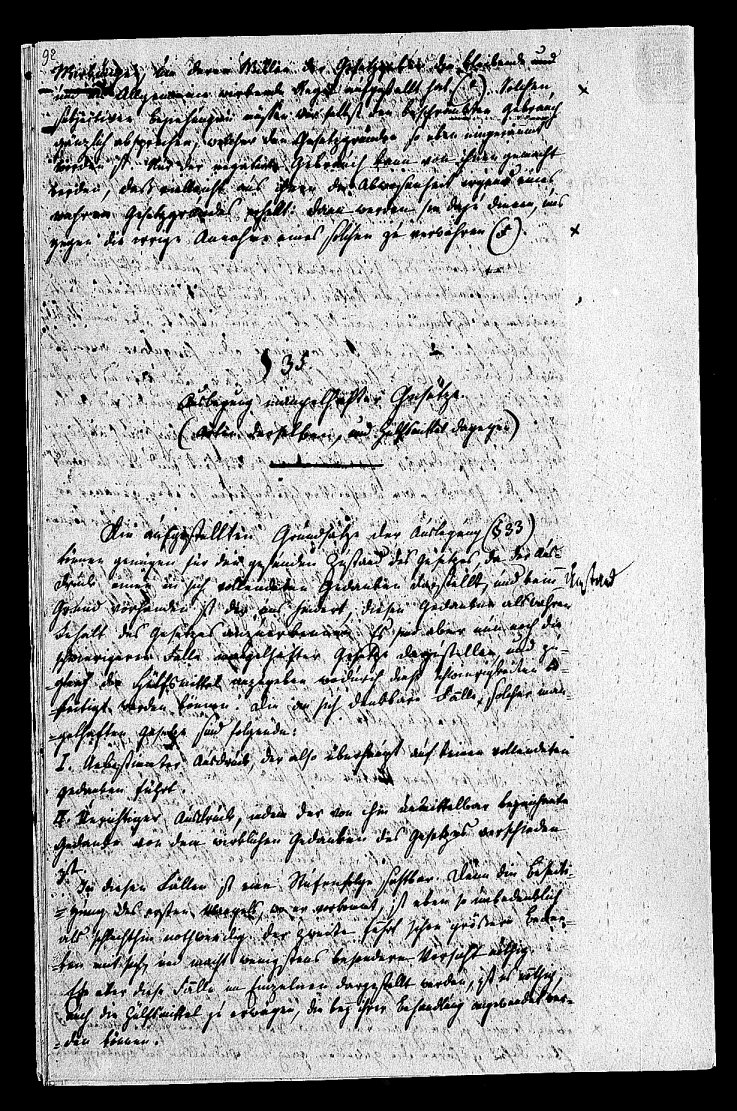 92
Wirkungen, an deren Willen der Gesetzgeber die bleibende und
im Allgemeinen wirkende Regel aufgestellt hat (e). Solchen,
subjectiven Beziehungen müssen wir selbst den beschränkten Gebrauch
gänzlich absprechen, welcher den Gesetzgründen so eben eingeräumt
worden ist. Nur der negative Gebrauch kann von ihnen gemacht
werden, daß vielleicht aus ihnen die Abwesenheit irgend eines
wahren Gesetzgrundes erhellt: dann werden sie dazu dienen, uns
gegen die irrige Annahme eines solchen zu verwahren (f).
§ 35
Auslegung mangelhafter Gesetze.
(Arten derselben, und Hülfsmittel dagegen)
Die aufgestellten Grundsätze der Auslegung (§ 33)
können genügen für den gesunden Zustand des Gesetzes, da der Aus-
druck einen in sich vollendeten Gedanken darstellt, und kein Umstand
vorhanden ist der uns hindert, diesen Gedanken als wahren
Gehalt des Gesetzes anzuerkennen. Es sind aber nun noch die
schwierigeren Fälle mangelhafter Gesetze darzustellen und zu-
gleich die Hülfsmittel anzugeben wodurch diese Schwierigkeiten be-
seitigt werden können. Die an sich denkbaren Fälle solcher man-
gelhaften Gesetze sind folgende:
I. Unbestimmter Ausdruck, der also überhaupt auf keinen vollendeten
Gedanken führt.
II. Unrichtiger Ausdruck, indem der von ihm unmittelbar bezeichnete
Gedanke von dem wirklichen Gedanken des Gesetzes verschieden
ist.
In diesen Fällen ist eine Stufenfolge sichtbar. Denn die Beseiti-
gung des ersten Mangels, wo er vorkommt, ist eben so unbedenklich
als schlechthin nothwendig. Der zweite führt schon größere Beden-
ken mit sich, und macht wenigstens besondere Vorsicht nöthig.
Ehe aber diese Fälle im Einzelnen dargestellt werden, ist es nöthig,
auch die Hülfsmittel zu erwägen, die bey ihrer Behandlung angewendet wer-
den können.